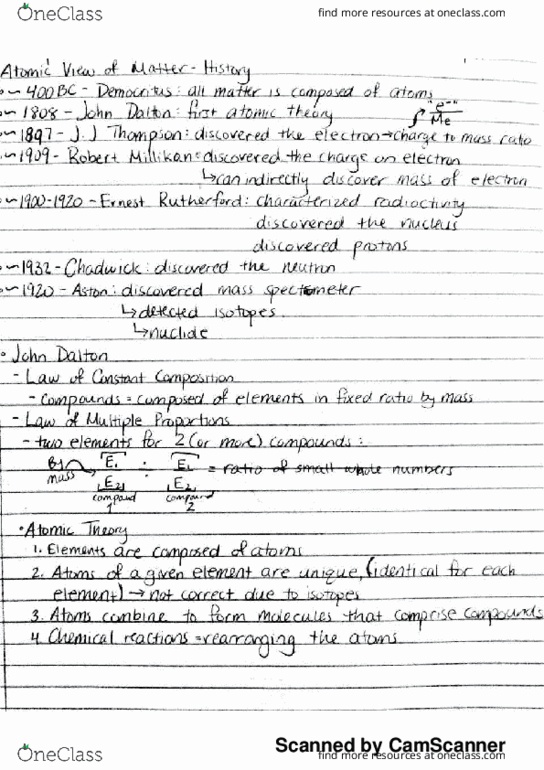 OneClass
find more resources at oneclass.com
Atomic View of Matter - History
~ 400 BC - Democritus: all matter is composed of atoms
~ 1808 - John Dalton: first atomic theory
"e-"
Me
~ 1897 - J.J Thompson: discovered the electron → charge to mass ratio
~ 1909 - Robert Millikan: discovered the charge on electron
↳ can indirectly discover mass of electron
~ 1900-1920 - Ernest Rutherford: characterized radioctivity
discovered the nucleus
discovered protons
~ 1932 - Chadwick: discovered the neutron
~ 1920 - Aston: discovered mass spectometer
↳ detected isotopes
↳ nuclide
• John Dalton
- Law of Constant Composition
- compounds = composed of elements in fixed ratio by mass
- Law of Multiple Proportions
- two elements for 2 (or more) compounds:
By mass E1 / E2 : E1 / E2 = ratio of small whole numbers
compound 1 compound 2
• Atomic Theory
1. Elements are composed of atoms
2. Atoms of a given element are unique, (identical for each
element) → not correct due to isotopes
3. Atoms combine to form molecules that comprise compounds
4. Chemical reactions = rearranging the atoms
Scanned by CamScanner
OneClass
find more resources at oneclass.com